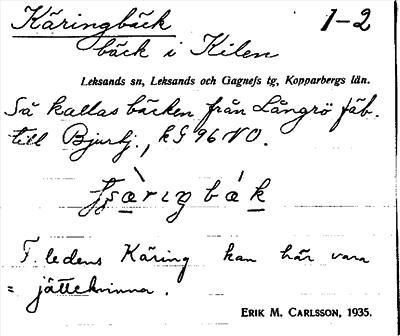 Käringbäck 1-2
bäck i Kilen
Leksands sn, Leksands och Gagnefs tg, Kopparbergs län.
Så kallas bäcken från Långrö fäb.
till Bjurtj., kS 96 NO.
F. ledens Käring kan här vara
= jättekvinna.
ERIK M. CARLSSON, 1935.